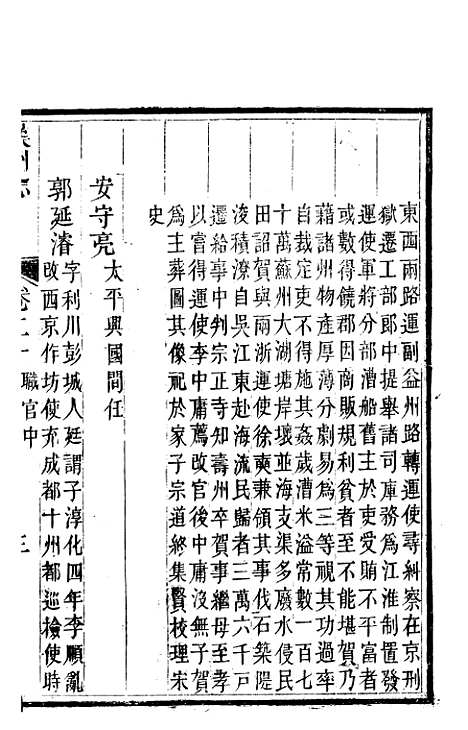 東西兩路運副益州路轉運使尋糾察在京刑
獄遷工部郎中提舉諸司庫務爲江淮制置發
運使軍將分部漕船舊主於吏受賄不平富者
或數得饒郡因商販規利貧者至不能堪賀乃
藉諸州物產厚薄分劇易爲三等視其功過率
自裁定吏不得其姦歲漕米溢常數一百七
十萬蘇州大湖塘岸壞並海支渠多廢水侵民
田詔賀與兩浙運使徐奭兼領其事伐石築隄
浚積潦自吳江東赴海流民歸者三萬六千戸
遷給事中判宗正寺知壽州卒賀事母至孝
以嘗得運使李中庸薦改官後中庸沒無子賀
爲主葬圖其像祀於家子宗道終集賢校理宋
史
安守亮太平興國間任
郭延濬字利川彭城人廷謂子淳化四年李順亂
改西京作坊使充成都十州都巡檢使時
卷二十職官中 三